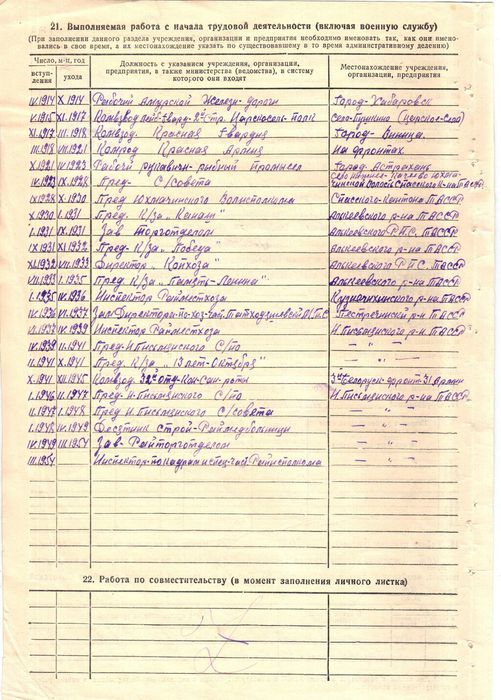 21. Выполняемая работа с начала трудовой деятельности (включая военную службу)
(При заполнении данного раздела учреждения, организации и предприятия необходимо именовать так, как они имено-
вались в свое время, а их местонахождение указать по существовавшему в то время административному делению)
Число, м-ц, год
вступ-
ления
ухода
Должность с указанием учреждения, организации,
предприятия, а также министерства (ведомства), в систему
которого они входят
Местонахождение учреждения,
организации, предприятия
IV.1914 X.1914 Рабочий Амурской Железн-дороги Город-Хабаровск
V.1915 XI.1917 Комвзвод 2й стр. Царскосельс полк Село-Пушкино (Царское-Село)
XI.1917 III.1918 Комвзвод. Красная Гвардия Город-Винница.
III.1918 VII.1921 Комвзвод Красная Армия На фронтах.
X.1921 IV.1923 Рабочий рыбный Промысел Город-Астрахань
IV.1923 IX.1928 Пред- С/Совета
IX.1928 X.1930 Пред Юхмачинского Волисполкома Спасского-Кантона ТАССР
X.1930 I.1931 Пред. К/за "Канаш" Алькеевского р-на ТАССР
I.1931 IX.1931 Зав Торготделом Алькеевского Р.И.С. ТАССР
IX.1931 XI.1932 Пред-К/за "Победа" Алькеевского р-на ТАССР
XI.1932 VII.1933 Директор "Копхоза" Алькеевского Р.П.С. ТАССР
VII.1933 I.1935 Пред К/за "Память-Ленина" Алькеевского р-на ТАССР
I.1935 IV.1936 Инспектор Райместхоза Кузнечихинского р-на ТАССР
IV.1936 VI.1937 Зам Директора-по-хоз-части Пестречинский р-н ТАССР
VI.1937 IV.1939 Инспектор Райместхоза Н.Письмянского р-на ТАССР
IV.1939 II.1941 Пред-Н.Письмянского С/по — " —
II.1941 X.1941 Пред. К/за "13 лет-Октября" — " —
X.1941 XII.1945 Комвзвод. 32й отд-Кон-сан-роты 3й-Белорусс-фронт 31 Армии
I.1946 II.1947 Пред-Н.Письмянского С/по Н.Письмянского р-на ТАССР
II.1947 I.1948 Пред Н.Письмянского С/совета — " —
I.1948 IV.1949 Десятник Строй-Райжелбольницы — " —
IV.1949 III.1954 Зав-Райторготделом — " —
III.1954 Инспектор-по кадрам и спец-част. Райисполкома
22. Работа по совместительству (в момент заполнения личного листка)